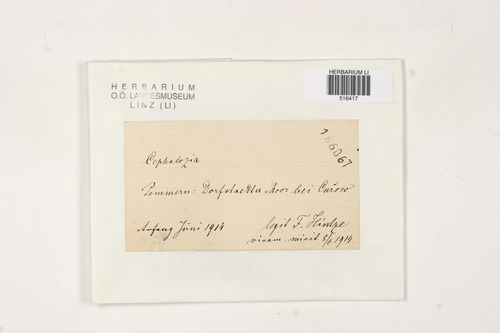 HERBARIUM
O.Ö. LANDESMUSEUM
LINZ (LI)
HERBARIUM LI
516417
186067
Cephalozia
Pommern: Moor bei
Anfang Juni 1914
legit F. Hintze
vivam misit 8/6 1914